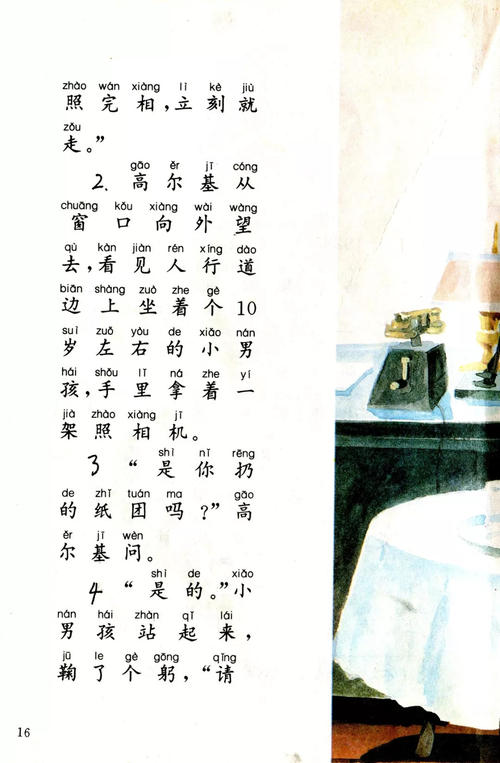 zhào wán xiàng lì kè jiù
照完相,立刻就
zǒu
走。”
gāo ěr jī cóng
2. 高尔基从
chuāng kǒu xiàng wài wàng
窗口向外望
qù kàn jiàn rén xíng dào
去,看见人行道
biān shàng zuò zhe gè
边上坐着个10
suì zuǒ yòu de xiǎo nán
岁左右的小男
hái shǒu lǐ ná zhe yí
孩,手里拿着一
jià zhào xiàng jī
架照相机。
shì nǐ rēng
3 “是你扔
de zhǐ tuán ma gāo
的纸团吗?”高
ěr jī wèn
尔基问。
shì de xiǎo
4 “是的。”小
nán hái zhàn qǐ lái
男孩站起来,
jū le gè gōng qǐng
鞠了个躬,“请
16